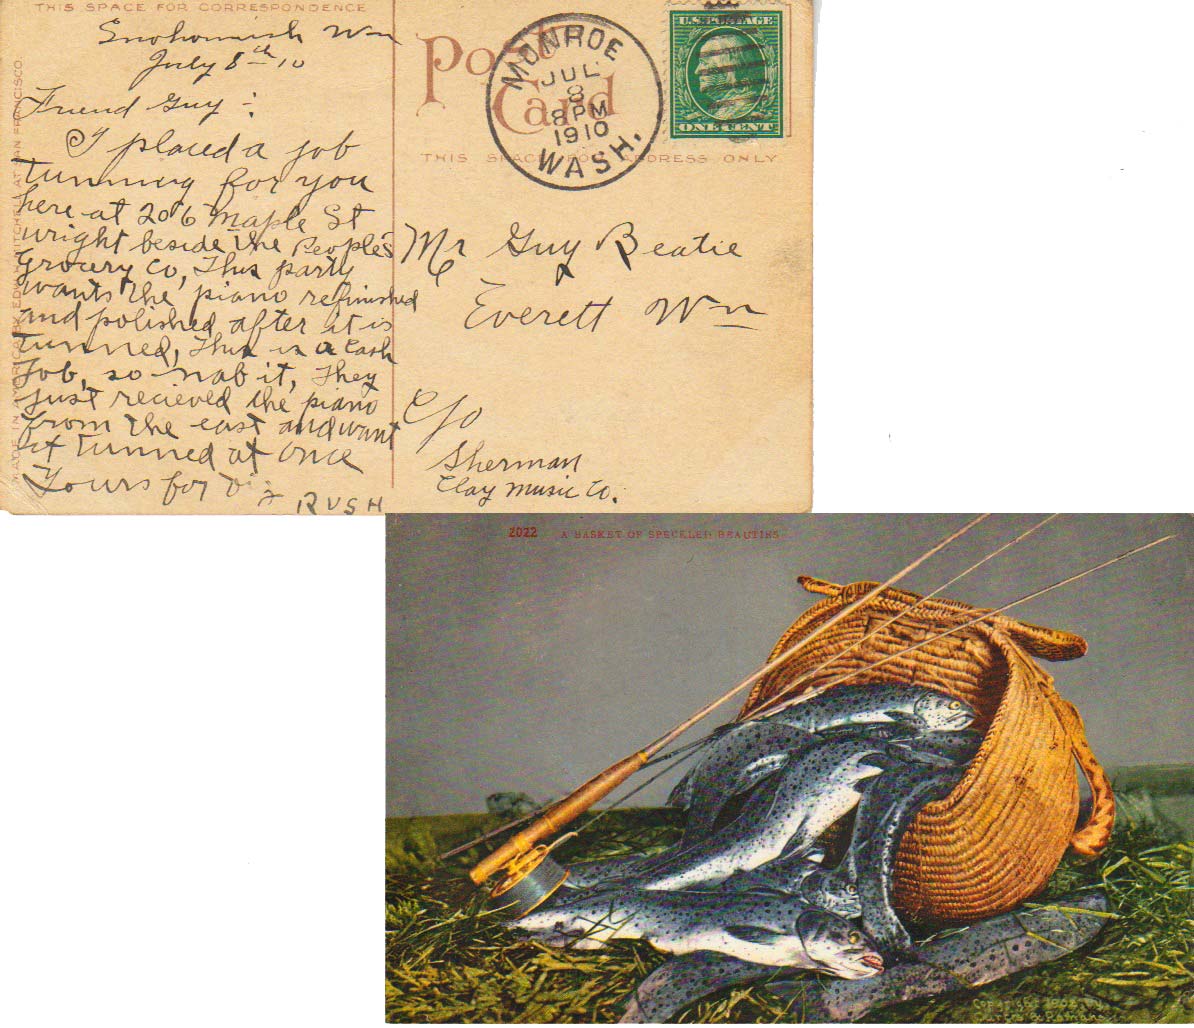 THIS SPACE FOR CORRESPONDENCE
Snohomish Wn
July 8th 10
Friend Guy :
I placed a job
tunning for you
here at 206 Maple St
wright beside the Peoples
Grocery Co, This party
wants the piano refinished
and polished after it is
tunned, This is a Cash
Job, so nab it, They
just recieved the piano
from the east and want
it tunned at once
Yours for
RUSH
MADE IN AMERICA BY EDW. H. MITCHELL AT SAN FRANCISCO.
Post
Card
THIS SPACE FOR ADDRESS ONLY
MONROE
JUL
8
8 PM
1910
WASH.
U.S. POSTAGE
ONE CENT
Mr Guy Beatie
Everett Wn
C/o
Sherman
Clay Music Co.
2022 A BASKET OF SPECKLED BEAUTIES
Copyright 1902 by
Curtis &